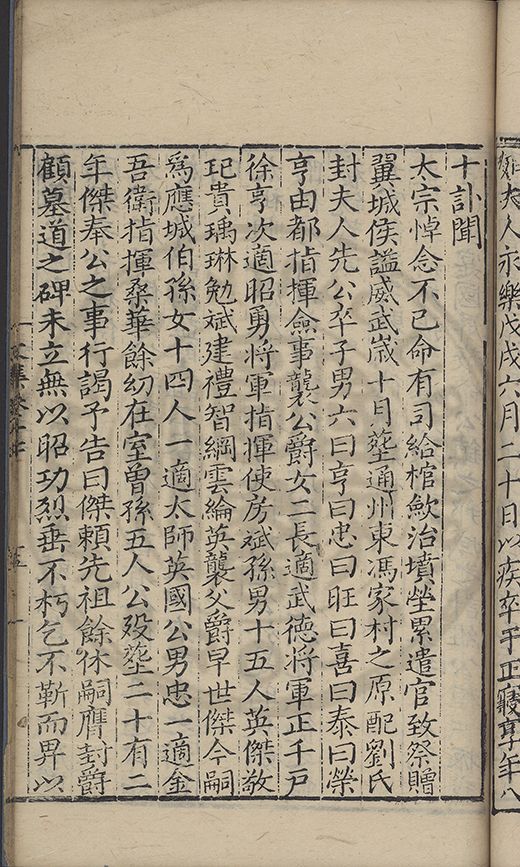 夫人永樂戊戌六月二十日以疾卒于正寢享年八
十訃聞
太宗悼念不已命有司給棺歛治墳塋累遣官致祭贈
翼城侯謚威武歲十月塟通州東馮家村之原配劉氏
封夫人先公卒子男六曰亨曰忠曰旺曰喜曰泰曰榮
亨由都指揮僉事襲公爵女二長適武德將軍正千戶
徐亨次適昭勇將軍指揮使房斌孫男十五人英傑敬
玘貴瑀琳勉斌建禮智綱雲綸英襲父爵早世傑今嗣
爲應城伯孫女十四人一適太師英國公男忠一適金
吾衛指揮桑華餘幼在室曾孫五人公歿塟二十有二
年傑奉公之事行謁予告曰傑賴先祖餘休嗣膺封爵
顧墓道之碑未立無以昭功烈垂不朽乞不靳而畀以